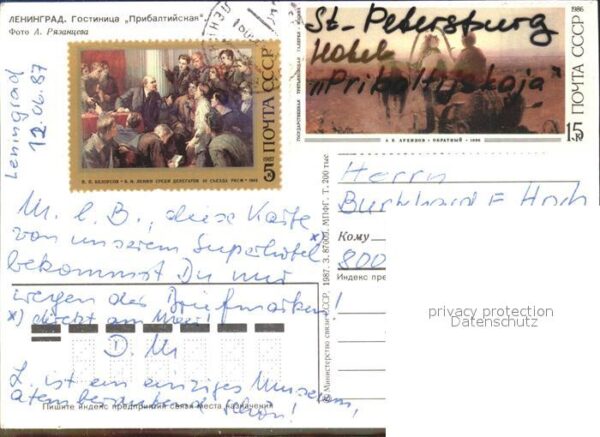 ЛЕНИНГРАД. Гостиница „Прибалтийская“
Фото Л. Рязанцева
Leningrad
12.06.87
ПОЧТА СССР
В. И. ЛЕНИН СРЕДИ ДЕЛЕГАТОВ III СЪЕЗДА РКСМ
St. Petersburg
Hotel
„Pribaltyskaja“
1986
ПОЧТА СССР
15 к
А. Е. АРХИПОВ · ОБРАТНЫЙ · 1896
M. l. B., diese Karte
von unserem Superhotel x)
bekommst Du nur
wegen der Briefmarken!
x) direkt am Meer!
D. M
L. ist ein einziges Museum,
atemberaubend schön!
Пишите индекс предприятия связи места назначения
© Министерство связи СССР. 1987. З. 87601. МПФГ. Т. 200 тыс
Herrn
Burkhard F Hoch
Кому
800
Индекс пре
privacy protection
Datenschutz